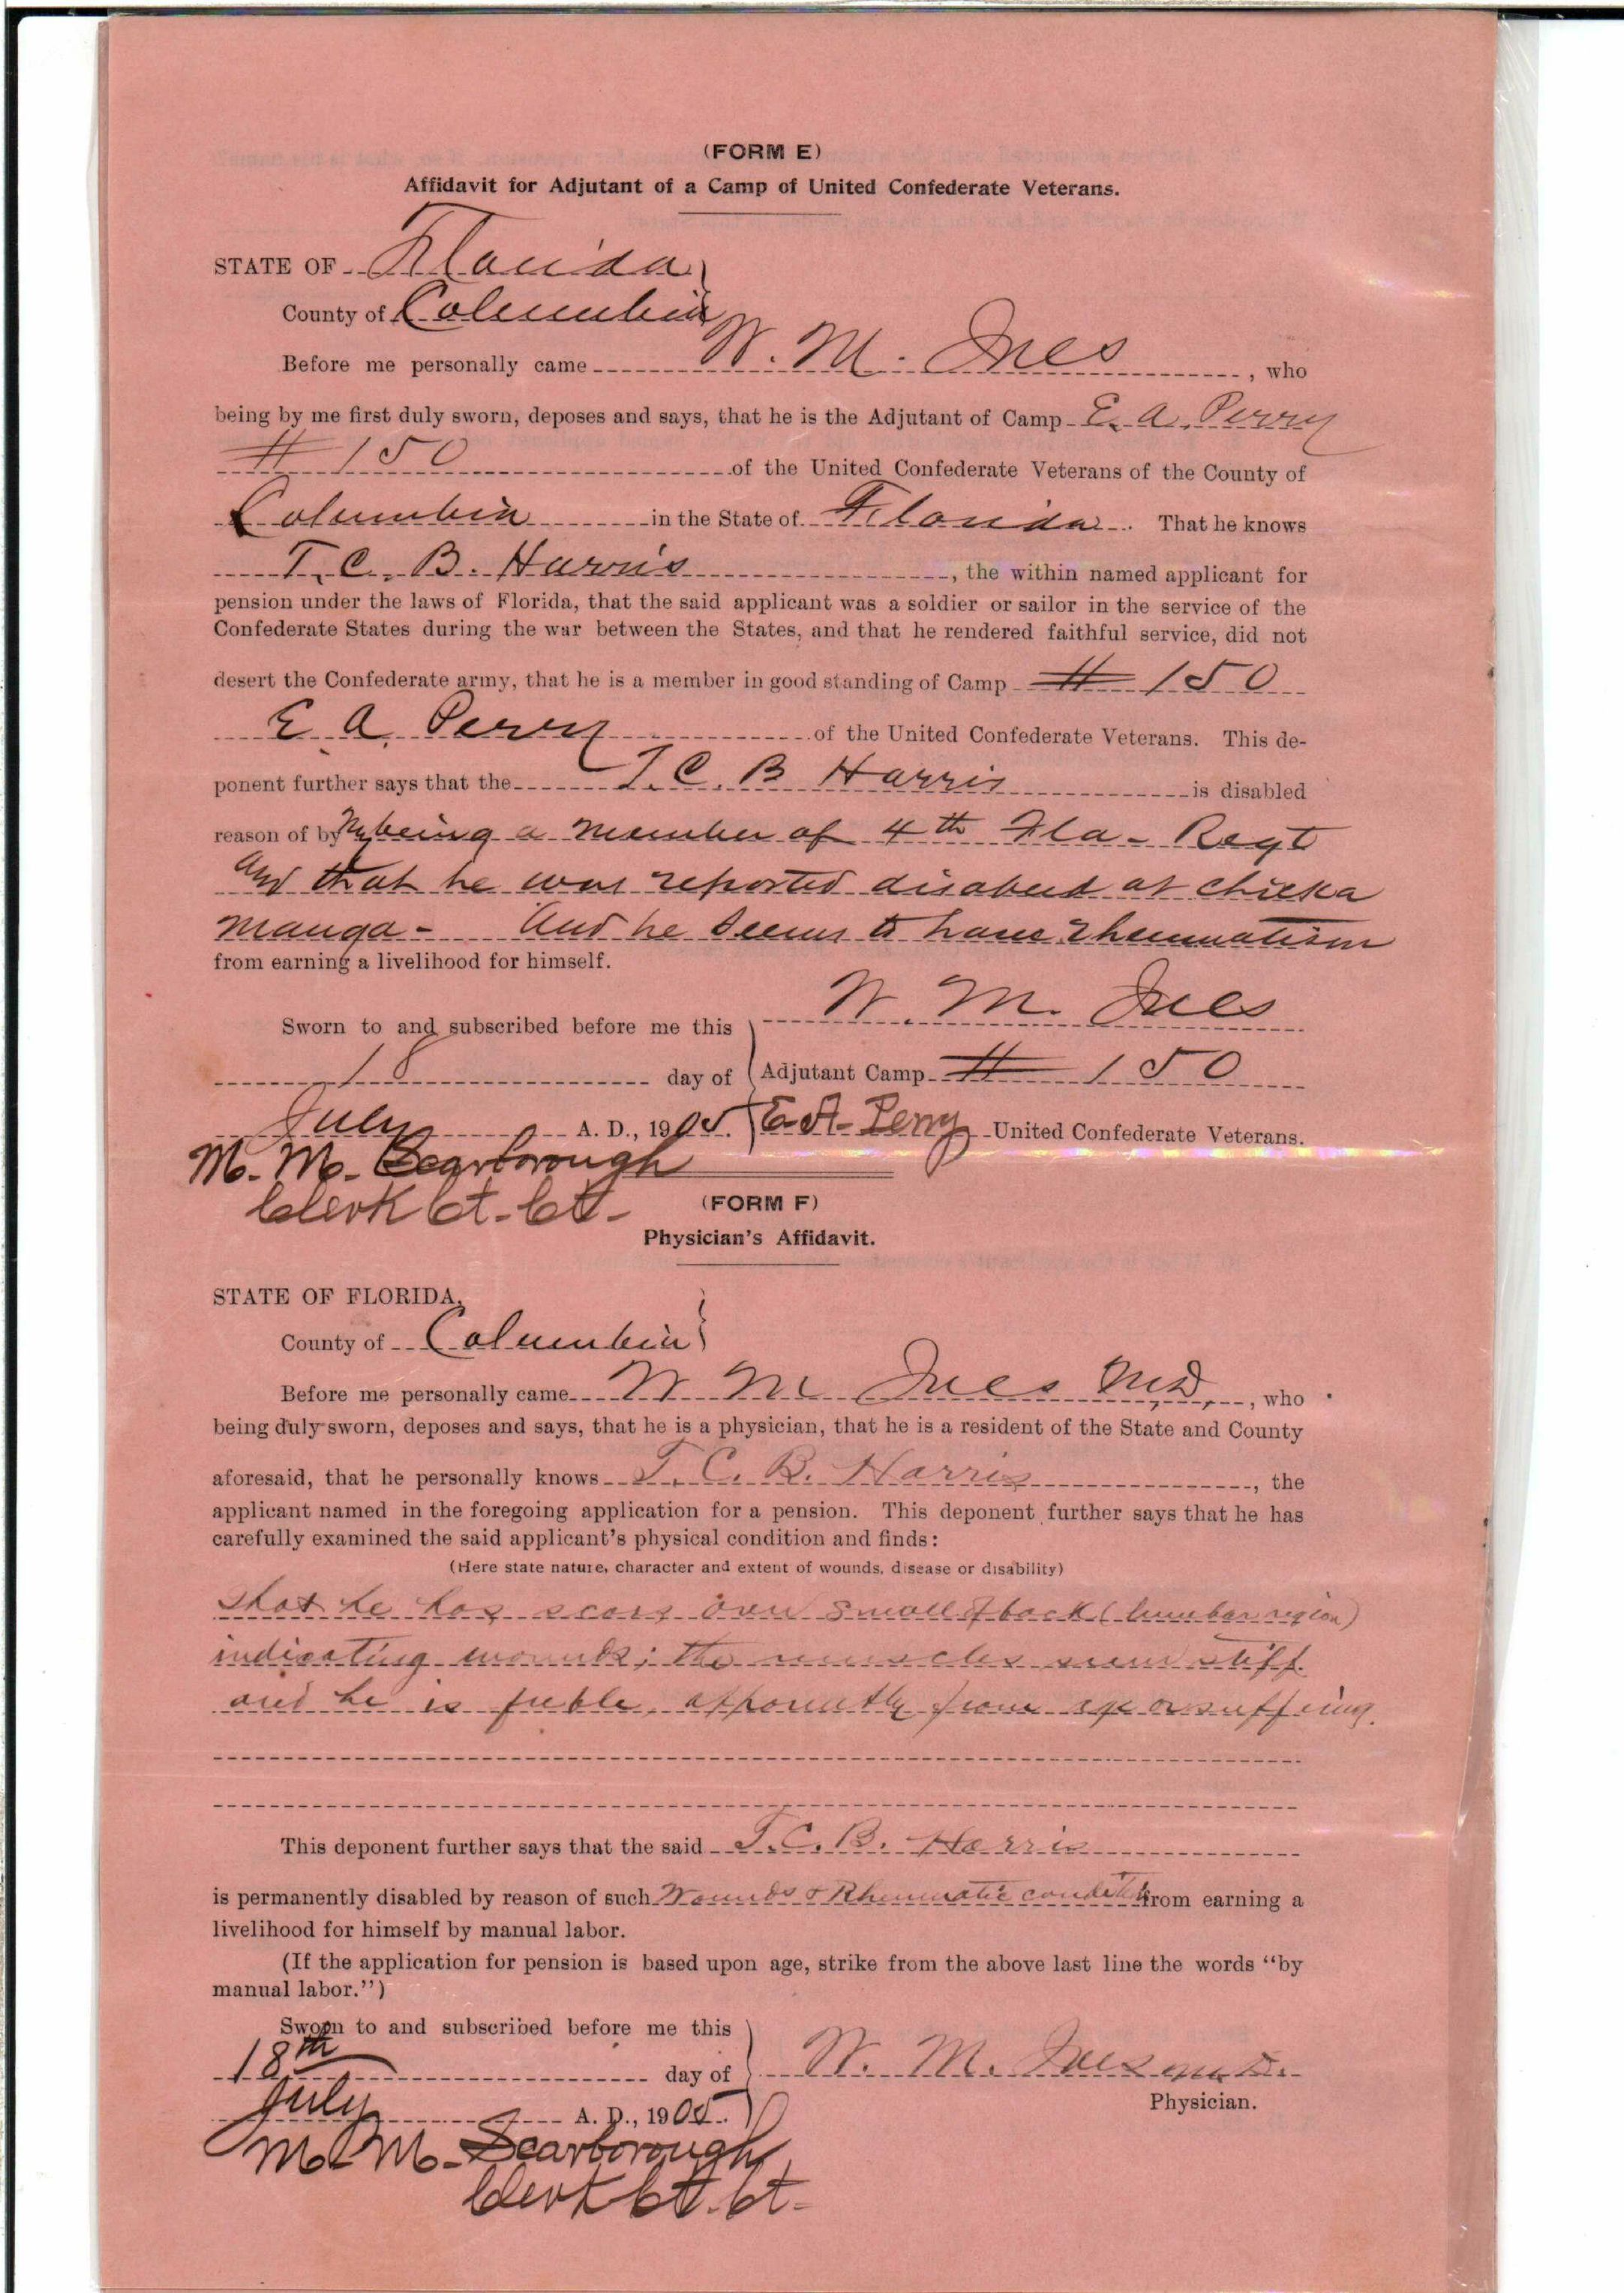 (FORM E)
Affidavit for Adjutant of a Camp of United Confederate Veterans.
STATE OF Florida
County of Columbia
Before me personally came W. M. Ives, who
being by me first duly sworn, deposes and says, that he is the Adjutant of Camp E. A. Perry
# 150 of the United Confederate Veterans of the County of
Columbia in the State of Florida. That he knows
T. C. B. Harris, the within named applicant for
pension under the laws of Florida, that the said applicant was a soldier or sailor in the service of the
Confederate States during the war between the States, and that he rendered faithful service, did not
desert the Confederate army, that he is a member in good standing of Camp # 150
E A. Perry of the United Confederate Veterans. This de-
ponent further says that the T. C. B Harris is disabled
reason of by being a member of 4th Fla - Regt
and that he was reported disabled at chicka
mauga - And he seems to have rheumatism
from earning a livelihood for himself.
W. M. Ives
Sworn to and subscribed before me this
18 day of Adjutant Camp # 150
July A. D., 1905. E. A. Perry United Confederate Veterans.
M. M. Scarborough
Clerk Ct. Ct.
(FORM F)
Physician's Affidavit.
STATE OF FLORIDA,
County of Columbia
Before me personally came W M Ives MD, who
being duly sworn, deposes and says, that he is a physician, that he is a resident of the State and County
aforesaid, that he personally knows T. C. B. Harris, the
applicant named in the foregoing application for a pension. This deponent further says that he has
carefully examined the said applicant's physical condition and finds:
(Here state nature, character and extent of wounds, disease or disability)
that he has scars over small of back (lumbar region)
indicating wounds; the muscles seem stiff
and he is feeble, apparently from age or suffering.
This deponent further says that the said T. C. B. Harris
is permanently disabled by reason of such Wounds & Rheumatic condition from earning a
livelihood for himself by manual labor.
(If the application for pension is based upon age, strike from the above last line the words "by
manual labor.")
Sworn to and subscribed before me this
18th day of W. M. Ives M.D.
Physician.
July A. D., 1905.
M. M. Scarborough
Clerk Ct. Ct.